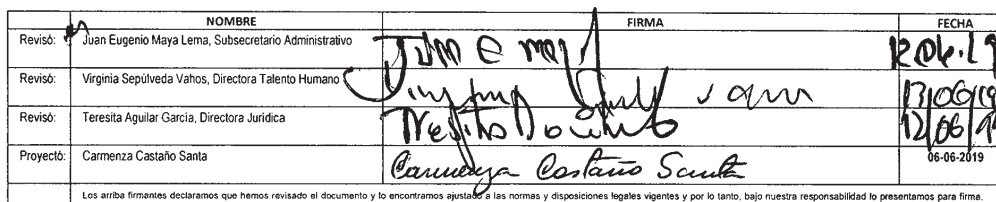 NOMBRE FIRMA FECHA
Revisó: Juan Eugenio Maya Lema, Subsecretario Administrativo 12.06.19
Revisó: Virginia Sepúlveda Vahos, Directora Talento Humano 13/06/19
Revisó: Teresita Aguilar García, Directora Jurídica 12/06/19
Proyectó: Carmenza Castaño Santa Carmenza Castaño Santa 06-06-2019
Los arriba firmantes declaramos que hemos revisado el documento y lo encontramos ajustado a las normas y disposiciones legales vigentes y por lo tanto, bajo nuestra responsabilidad lo presentamos para firma.